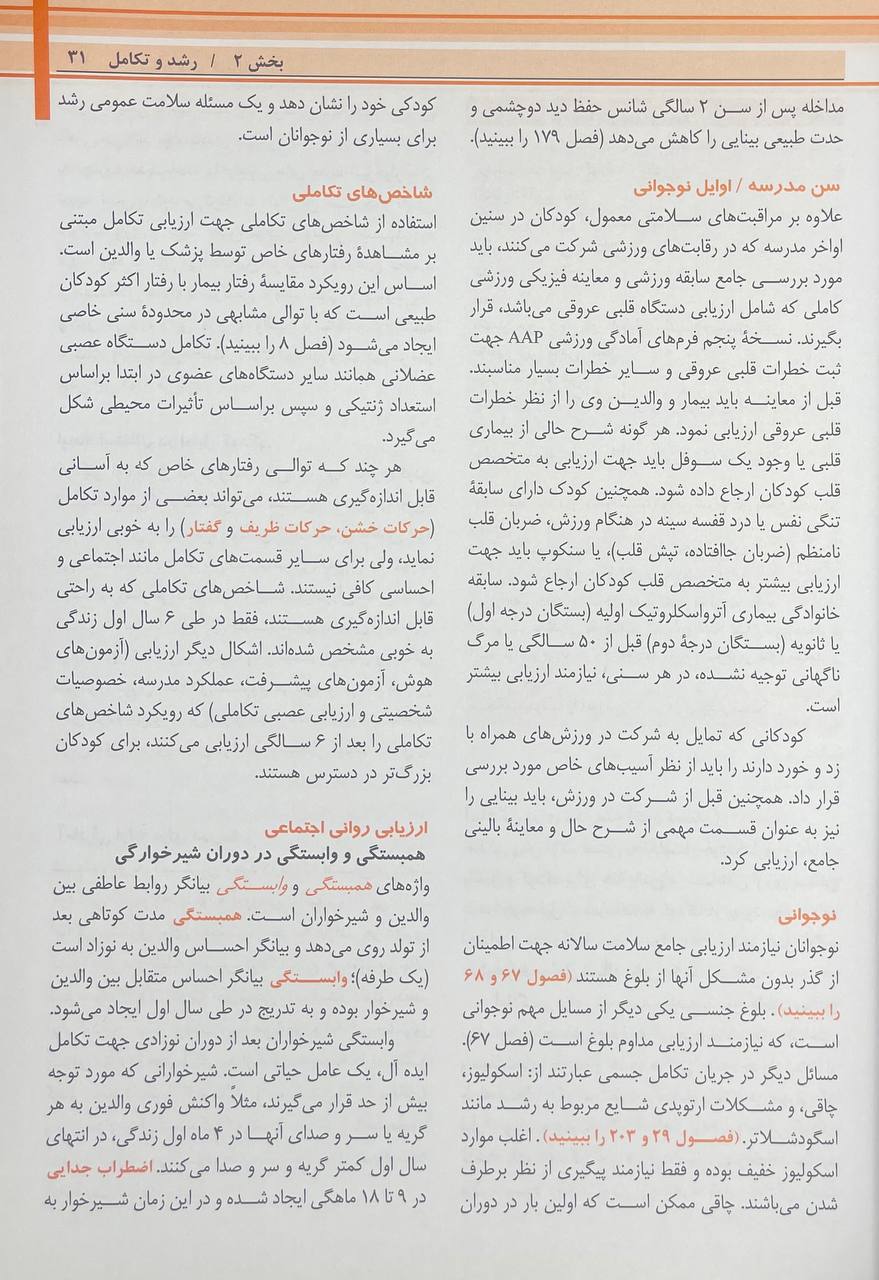 بخش ۲ / رشد و تکامل ۳۱
مداخله پس از سن ۲ سالگی شانس حفظ دید دوچشمی و
حدت طبیعی بینایی را کاهش می‌دهد (فصل ۱۷۹ را ببینید).
سن مدرسه / اوایل نوجوانی
علاوه بر مراقبت‌های سلامتی معمول، کودکان در سنین
اواخر مدرسه که در رقابت‌های ورزشی شرکت می‌کنند، باید
مورد بررسی جامع سابقه ورزشی و معاینه فیزیکی ورزشی
کاملی که شامل ارزیابی دستگاه قلبی عروقی می‌باشد، قرار
بگیرند. نسخهٔ پنجم فرم‌های آمادگی ورزشی AAP جهت
ثبت خطرات قلبی عروقی و سایر خطرات بسیار مناسبند.
قبل از معاینه باید بیمار و والدین وی را از نظر خطرات
قلبی عروقی ارزیابی نمود. هر گونه شرح حالی از بیماری
قلبی یا وجود یک سوفل باید جهت ارزیابی به متخصص
قلب کودکان ارجاع داده شود. همچنین کودک دارای سابقهٔ
تنگی نفس یا درد قفسه سینه در هنگام ورزش، ضربان قلب
نامنظم (ضربان جاافتاده، تپش قلب)، یا سنکوپ باید جهت
ارزیابی بیشتر به متخصص قلب کودکان ارجاع شود. سابقه
خانوادگی بیماری آترواسکلروتیک اولیه (بستگان درجه اول)
یا ثانویه (بستگان درجهٔ دوم) قبل از ۵۰ سالگی یا مرگ
ناگهانی توجیه نشده، در هر سنی، نیازمند ارزیابی بیشتر
است.
کودکانی که تمایل به شرکت در ورزش‌های همراه با
زد و خورد دارند را باید از نظر آسیب‌های خاص مورد بررسی
قرار داد. همچنین قبل از شرکت در ورزش، باید بینایی را
نیز به عنوان قسمت مهمی از شرح حال و معاینهٔ بالینی
جامع، ارزیابی کرد.
نوجوانی
نوجوانان نیازمند ارزیابی جامع سلامت سالانه جهت اطمینان
از گذر بدون مشکل آنها از بلوغ هستند (فصول ۶۷ و ۶۸
را ببینید). بلوغ جنسی یکی دیگر از مسایل مهم نوجوانی
است، که نیازمند ارزیابی مداوم بلوغ است (فصل ۶۷).
مسائل دیگر در جریان تکامل جسمی عبارتند از: اسکولیوز،
چاقی، و مشکلات ارتوپدی شایع مربوط به رشد مانند
اسگودشلاتر. (فصول ۲۹ و ۲۰۳ را ببینید). اغلب موارد
اسکولیوز خفیف بوده و فقط نیازمند پیگیری از نظر برطرف
شدن می‌باشند. چاقی ممکن است که اولین بار در دوران
کودکی خود را نشان دهد و یک مسئله سلامت عمومی رشد
برای بسیاری از نوجوانان است.
شاخص‌های تکاملی
استفاده از شاخص‌های تکاملی جهت ارزیابی تکامل مبتنی
بر مشاهدهٔ رفتارهای خاص توسط پزشک یا والدین است.
اساس این رویکرد مقایسهٔ رفتار بیمار با رفتار اکثر کودکان
طبیعی است که با توالی مشابهی در محدودهٔ سنی خاصی
ایجاد می‌شود (فصل ۸ را ببینید). تکامل دستگاه عصبی
عضلانی همانند سایر دستگاه‌های عضوی در ابتدا براساس
استعداد ژنتیکی و سپس براساس تأثیرات محیطی شکل
می‌گیرد.
هر چند که توالی رفتارهای خاص که به آسانی
قابل اندازه‌گیری هستند، می‌تواند بعضی از موارد تکامل
(حرکات خشن، حرکات ظریف و گفتار) را به خوبی ارزیابی
نماید، ولی برای سایر قسمت‌های تکامل مانند اجتماعی و
احساسی کافی نیستند. شاخص‌های تکاملی که به راحتی
قابل اندازه‌گیری هستند، فقط در طی ۶ سال اول زندگی
به خوبی مشخص شده‌اند. اشکال دیگر ارزیابی (آزمون‌های
هوش، آزمون‌های پیشرفت، عملکرد مدرسه، خصوصیات
شخصیتی و ارزیابی عصبی تکاملی) که رویکرد شاخص‌های
تکاملی را بعد از ۶ سالگی ارزیابی می‌کنند، برای کودکان
بزرگ‌تر در دسترس هستند.
ارزیابی روانی اجتماعی
همبستگی و وابستگی در دوران شیرخوارگی
واژه‌های همبستگی و وابستگی بیانگر روابط عاطفی بین
والدین و شیرخواران است. همبستگی مدت کوتاهی بعد
از تولد روی می‌دهد و بیانگر احساس والدین به نوزاد است
(یک طرفه)؛ وابستگی بیانگر احساس متقابل بین والدین
و شیرخوار بوده و به تدریج در طی سال اول ایجاد می‌شود.
وابستگی شیرخواران بعد از دوران نوزادی جهت تکامل
ایده آل، یک عامل حیاتی است. شیرخوارانی که مورد توجه
بیش از حد قرار می‌گیرند، مثلاً واکنش فوری والدین به هر
گریه یا سر و صدای آنها در ۴ ماه اول زندگی، در انتهای
سال اول کمتر گریه و سر و صدا می‌کنند. اضطراب جدایی
در ۹ تا ۱۸ ماهگی ایجاد شده و در این زمان شیرخوار به